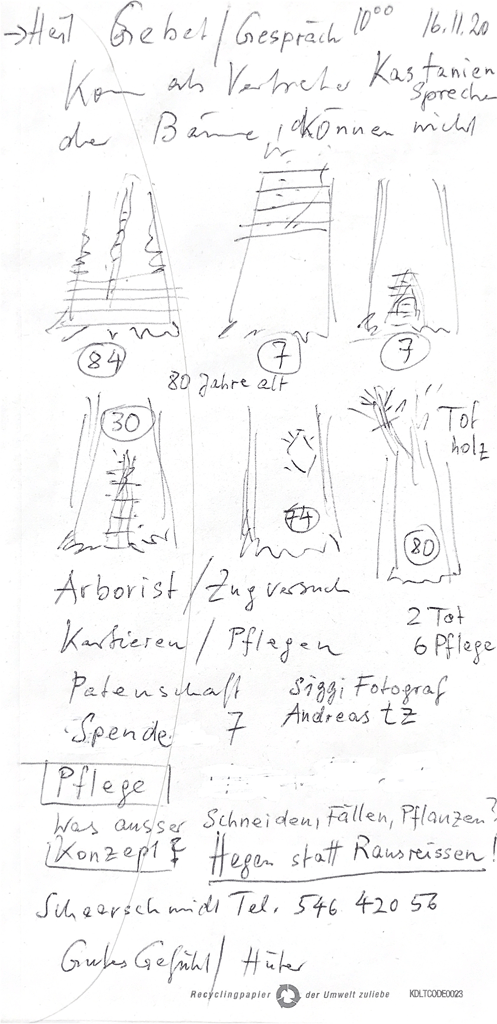 →Herr Gebet / Gespräch 10⁰⁰ 16.11.20
Kom als Vertreter Kastanien
der Bäume, können nicht sprechen
84
7
7
80 Jahre alt
30
74
80
Tot
holz
Arborist / Zugversuch
2 Tot
Kartieren / Pflegen
6 Pflege
Patenschaft Siggi Fotograf
Spende 7 Andreas tz
Pflege
Was ausser Schneiden, Fällen, Pflanzen?
Konzept? Hegen statt Rausreissen!
Scheerschmidt Tel. 546 420 56
Gutes Gefühl / Hüter
Recyclingpapier der Umwelt zuliebe KDLTCODE0023